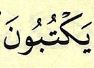 يَكْتُبُونَ